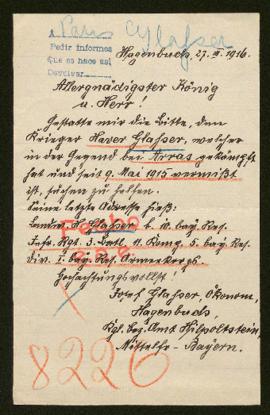 Paris Glasser
Pedir informes
que se hace así
Devolver
Hagenbuch, 27. II. 1916.
Allergnädigster König
u. Herr!
Gestatte mir die Bitte, dem
Krieger Xaver Glasser, welcher
in der Gegend bei Arras gekämpft
hat und seit 9. Mai 1915 vermißt
ist, suchen zu helfen.
Seine letzte Adresse hieß:
Landw. X. Glasser b. 10. bay. Res.
Inftr. Rgt. 3. Batl. 11. Komp. 5. bay. Res.
Div. I. bay. Res. Armeekorps.
Hochachtungsvollst!
Josef Glasser, Ökonom,
Hagenbuch,
Kgl. bay. Amt Hilpoltstein,
Mittelfr. - Bayern.
8226